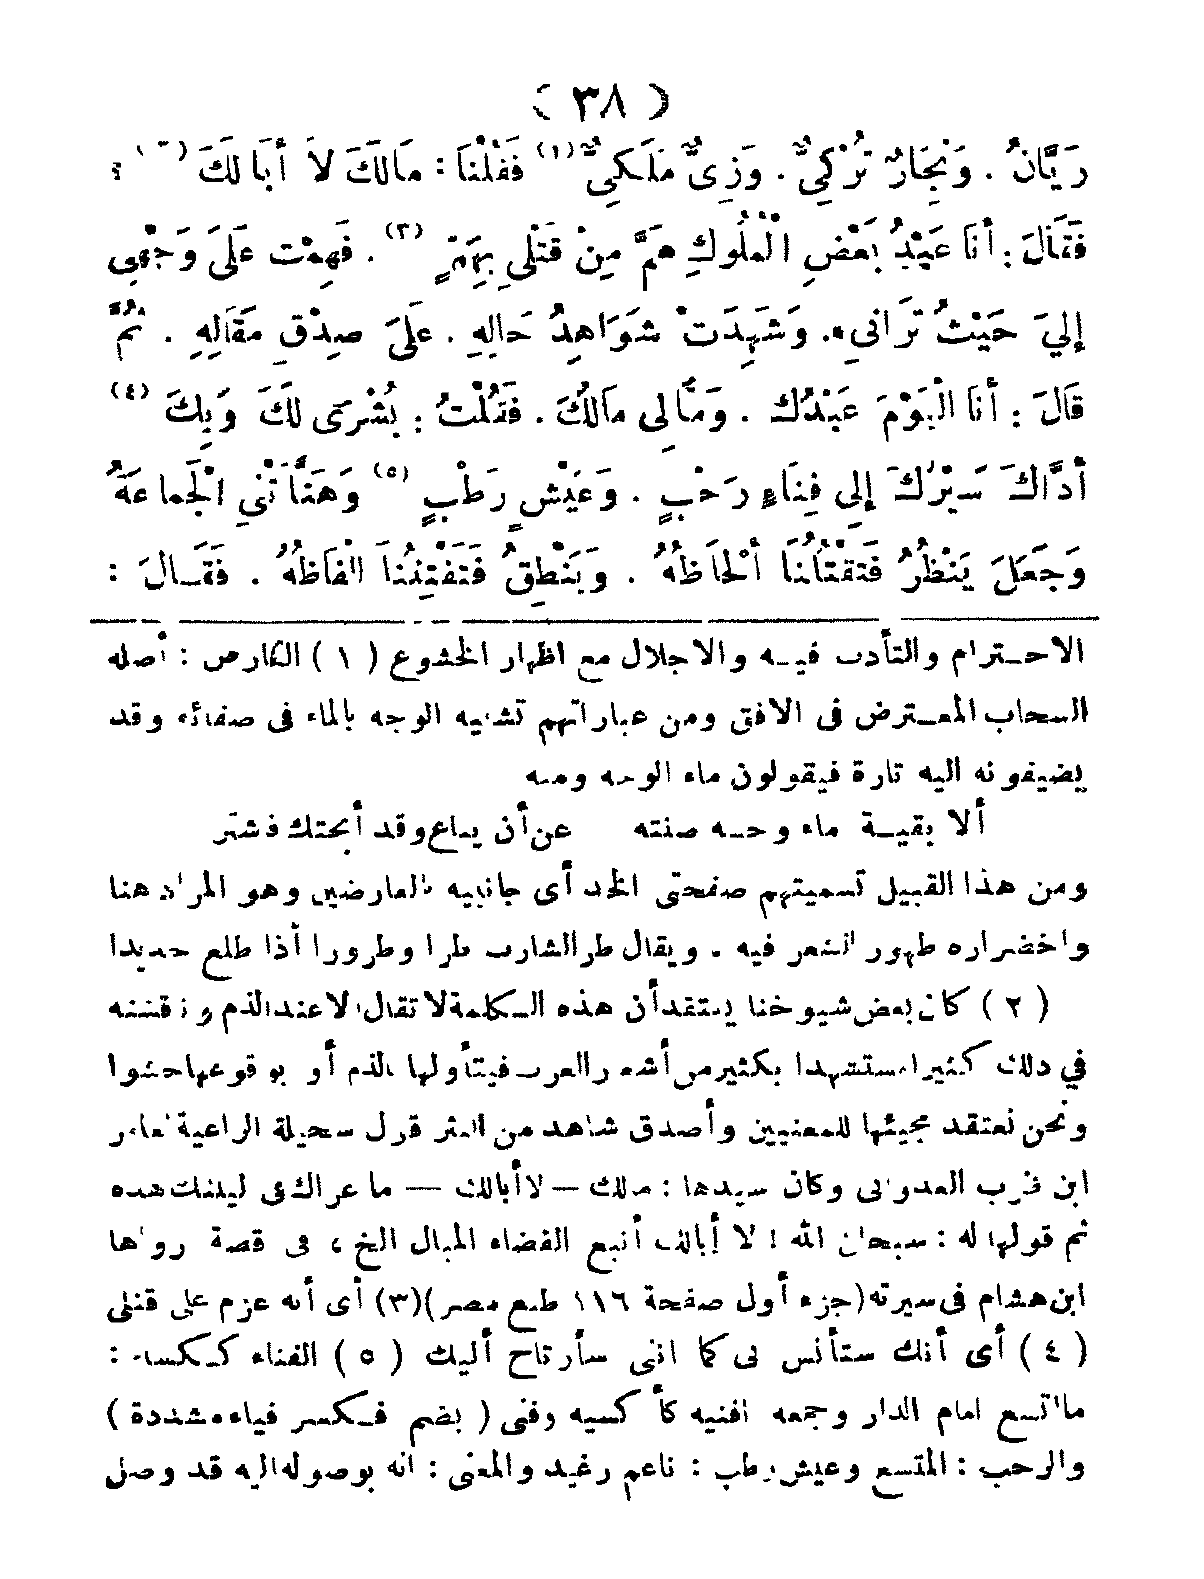 ( ٣٨ )
رَيَّانُ . وَنِجَارٌ تُرْكِيٌّ . وَزِيٌّ مَلَكِيٌّ (١) فَقُلْنَا : مَالَكَ لاَ أَبَالَكَ (٢) ؟
فَقَالَ : أَنَا عَبْدُ بَعْضِ الْمُلُوكِ هَمَّ مِنْ قَتْلِي بِهَمٍّ (٣) . فَهِمْتُ عَلَى وَجْهِي
إِلَى حَيْثُ تَرَانِي . وَشَهِدَتْ شَوَاهِدُ حَالِهِ . عَلَى صِدْقِ مَقَالِهِ . ثُمَّ
قَالَ : أَنَا الْيَوْمَ عَبْدُكَ . وَمَالِي مَالُكَ . فَقُلْتُ : بُشْرَى لَكَ وَبِكَ (٤)
أَدَّاكَ سَيْرُكَ إِلى فِنَاءٍ رَحْبٍ . وَعَيْشٍ رَطْبٍ (٥) وَهَنَّأَتْنِي الْجَماعَةُ
وَجَعَلَ يَنْظُرُ فَتَقْتُلُنَا أَلْحَاظُهُ . وَيَنْطِقُ فَتَفْتِنُنَا الْفَاظُهُ . فَقَـالَ :
الاحـترام والتأدب فيـه والاجلال مع اظهار الخشوع ( ١ ) العارض : أصله
السحاب المعـترض فى الافق ومن عباراتهم تشبيه الوجه بالماء فى صفائه وقد
يضيفونه اليه تارة فيقولون ماء الوجه ومنه
ألا بقيـة ماء وجـه صنته عن أن يباع وقد أبحتك فشتر
ومن هذا القبيل تسميتهم صفحتى الخد أى جانبيه بالعارضين وهو المراد هنا
واخضراره ظهور الشعر فيه . ويقال طر الشارب طرا وطرورا أذا طلع حديدا
( ٢ ) كان بعض شيوخنا يعتقد أن هذه الكلمة لا تقال الا عند الذم وناقشته
في ذلك كثيرا مستشهدا بكثير من أشعار العرب فيتأولها بالذم أو بوقوعها حشوا
ونحن نعتقد مجيئها للمعنيين وأصدق شاهد من النثر قول سخيلة الراعية لعامر
ابن ظرب العدوانى وكان سيدها : مالك — لا أبالك — ما عراك فى ليلتك هده
ثم قولها له : سبحان الله ! لا أبالك أتبع القضاء المبال الخ ، فى قصة رواها
ابن هشام فى سيرته (جزء أول صفحة ١١٦ طبع مصر) (٣) أى أنه عزم على قتلى
( ٤ ) أى أنك ستأنس بى كما اننى سأرتاح أليك ( ٥ ) الفناء ككساء :
ما اتسع امام الدار وجمعه افنيه كأكسيه وفنى ( بضم فـكسر فياء مشددة )
والرحب : المتسع وعيش رطب : ناعم رغيد والمعنى : انه بوصوله اليه قد وصل